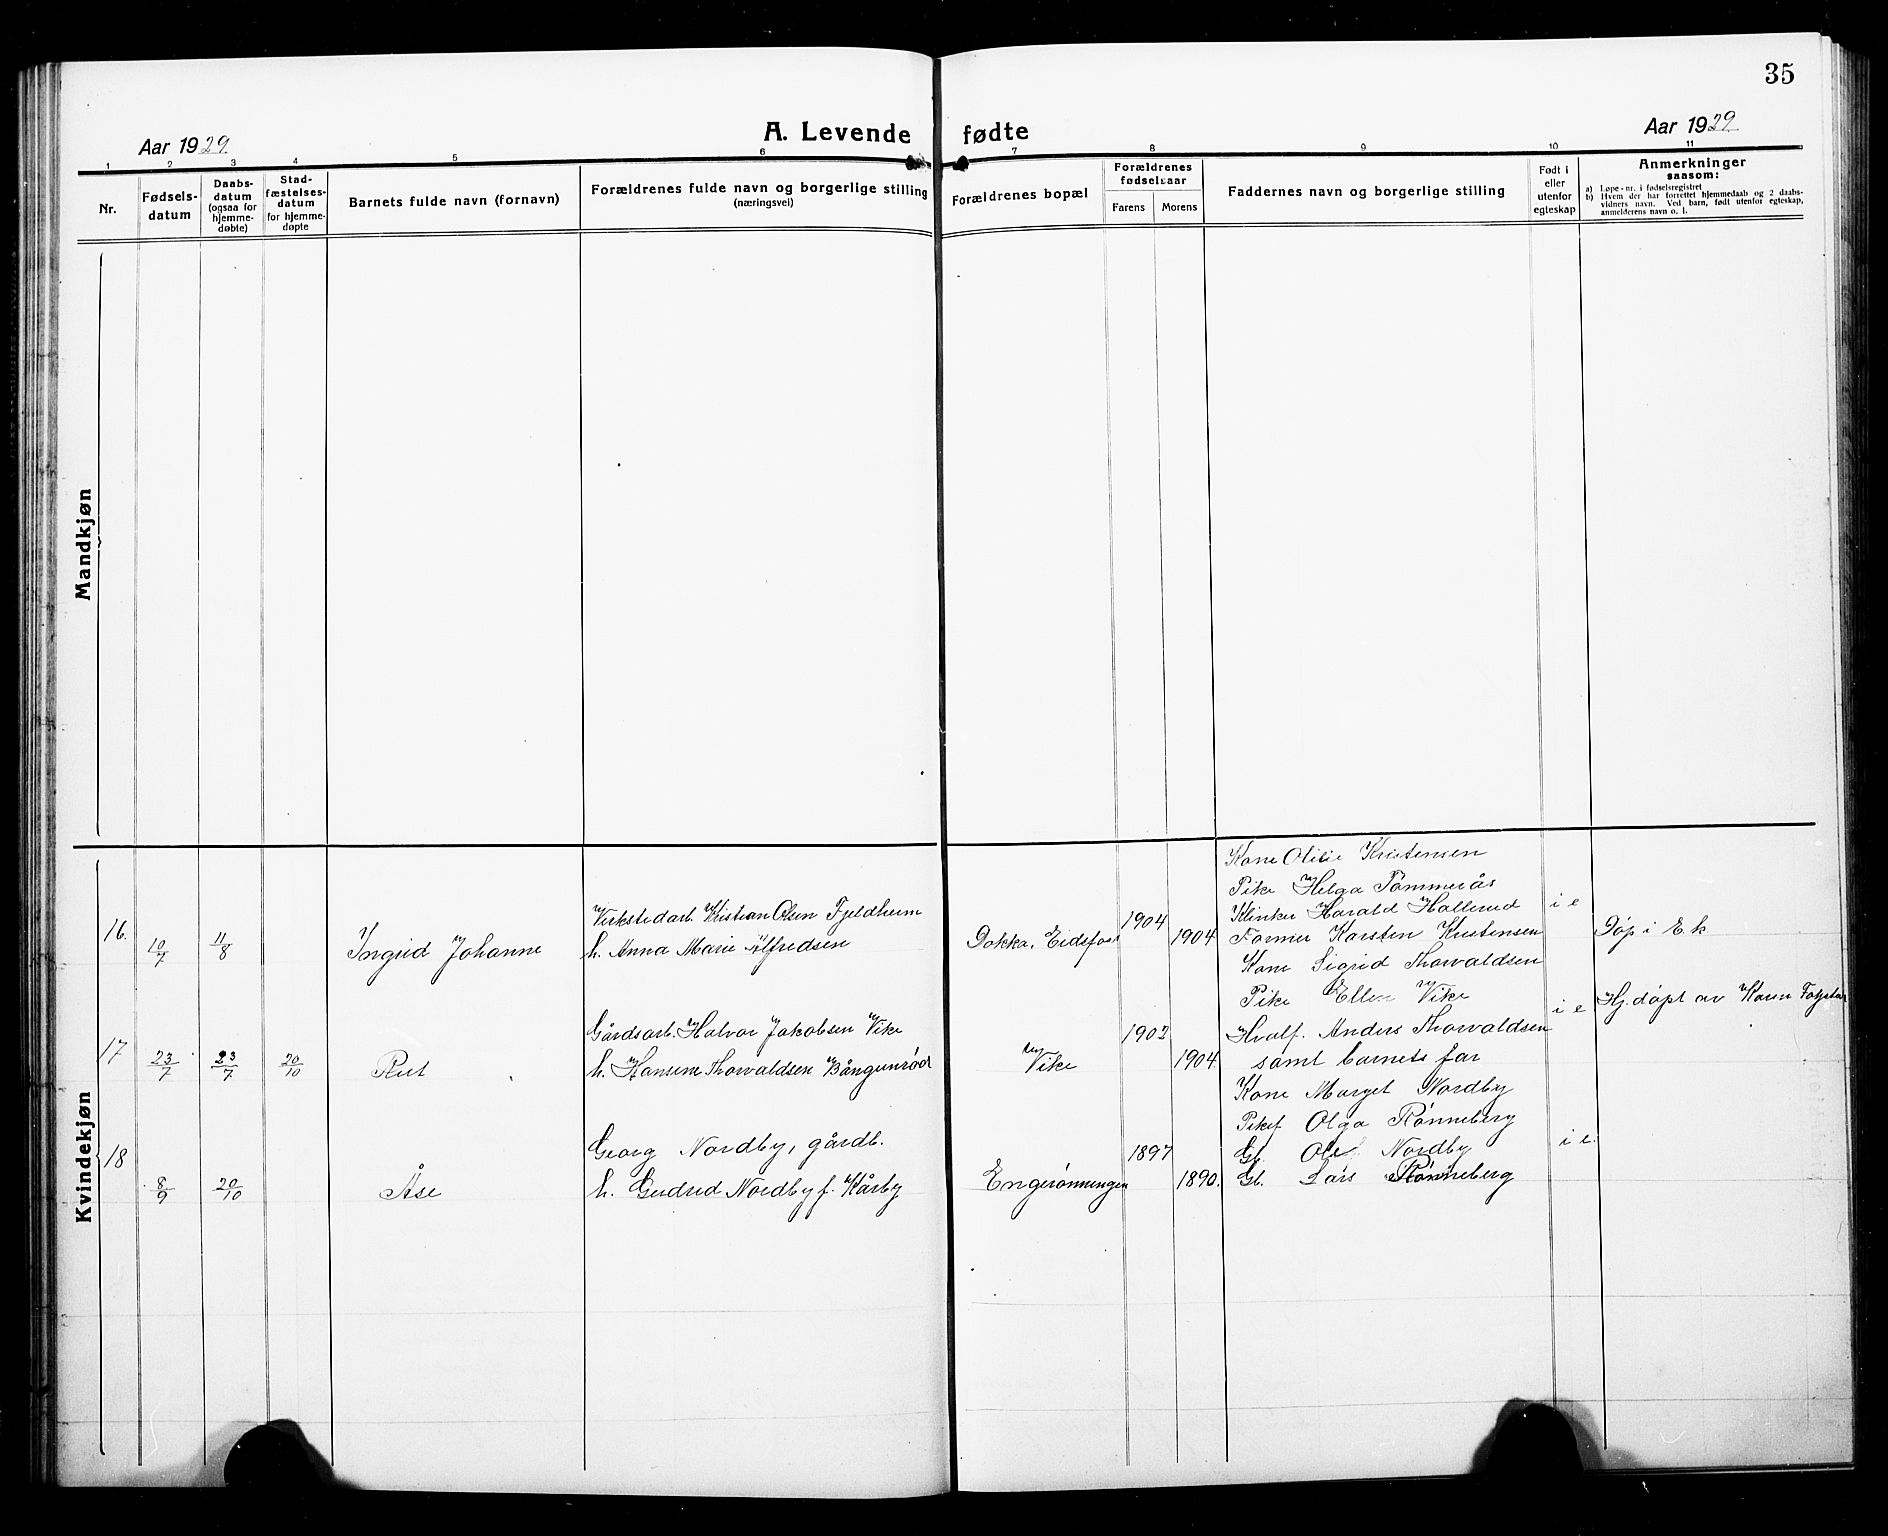 35
A. Levende fødte
Aar 1929
Aar 1929
1 2 3 4 5 6 7 8 9 10 11
Nr.
Fødsels-
datum
Daabs-
datum
(ogsaa for
hjemme-
døbte)
Stad-
fæstelses-
datum
for hjemme-
døpte
Barnets fulde navn (fornavn)
Forældrenes fulde navn og borgerlige stilling
(næringsvei)
Forældrenes bopæl
Forældrenes
fødselsaar
Farens Morens
Faddernes navn og borgerlige stilling
Født i
eller
utenfor
egteskap
Anmerkninger
saasom:
a) Løpe-nr. i fødselsregistret
b) Hvem der har forrettet hjemmedaab og 2 daabs-
vidners navn. Ved barn, født utenfor egteskap,
anmelderens navn o. l.
Mandkjøn
Kvindekjøn
16.
10/7
11/8
Ingrid Johanne
Verkstedarb. Kristian Olsen Fjeldheim
h. Anna Marie Alfredsen
Dokka, Eidsfoss
1904
1904
Kone Kristensen
Pike Helga Tømmerås
Klinker Harald Hallerud
Former Karsten Kristensen
i e
Døp i E. k
17
23/7
23/7
20/10
Rut
Gårdsarb. Halvor Jakobsen Vike
h. Hansine Thorvaldsen Bångunrød
Vike
1903
1904.
Kone Sigrid Thorvaldsen
Pike Ellen Vike
Hvalf. Anders Thorvaldsen
samt barnets far
i e
Hj. døpt av Karen
18
8/9
20/10
Åse
Georg Nordby, gårdb.
h. Gudrud Nordby f. Kårby
Engerønningen
1897
1890.
Kone Marget Nordby
Pikef Olga Rønneberg
Gb. Ole Nordby
Gb. Lars Rønneberg
i e.